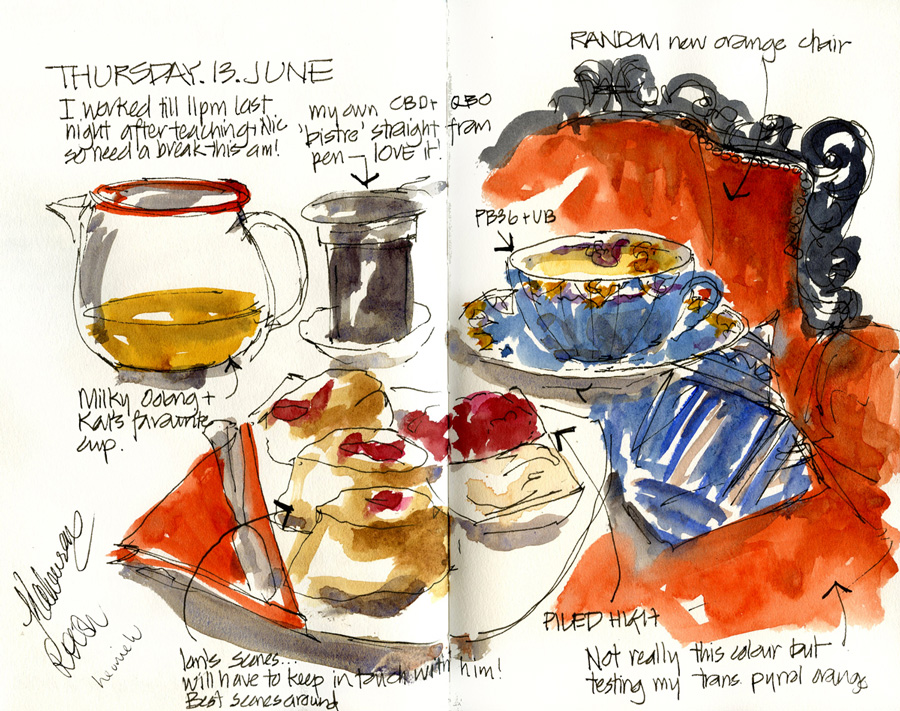 THURSDAY.13.JUNE
I worked till 11pm last
night after teaching + Nic
so need a break this am!
my own CBD+ QBO
'bistre' straight from
pen - LOVE it!
RANDOM new orange chair
PB36 + UB
Milky Oolong +
Kat's favourite
cup.
Ian's scones...
will have to keep in touch with him!
Best scones around
PILED HIGH
Not really this colour but
testing my trans pyrrol orange